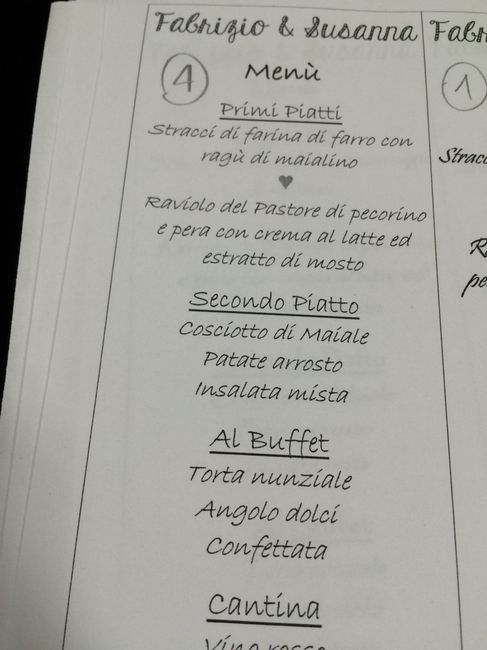 Fabrizio & Susanna
4
Menù
Primi Piatti
Stracci di farina di farro con
ragù di maialino
Raviolo del Pastore di pecorino
e pera con crema al latte ed
estratto di mosto
Secondo Piatto
Cosciotto di Maiale
Patate arrosto
Insalata mista
Al Buffet
Torta nunziale
Angolo dolci
Confettata
Cantina
Vino rosso
1